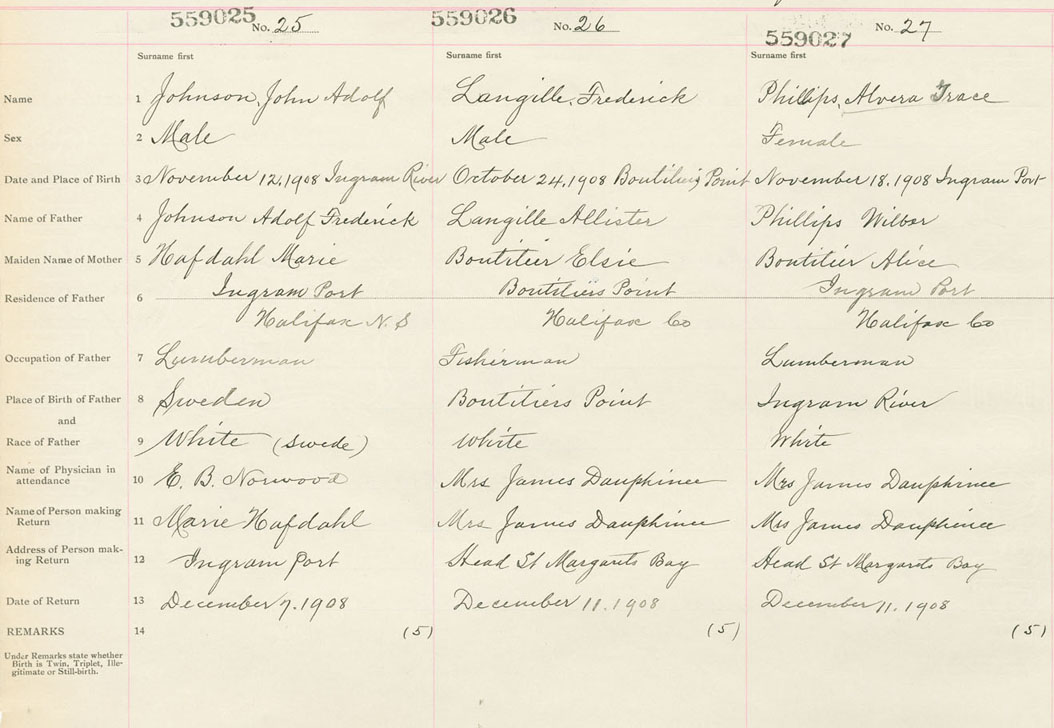 559025 No. 25 559026 No. 26 559027 No. 27
Surname first Surname first Surname first
Name 1 Johnson, John Adolf Langille, Frederick Phillips, Alvera Grace
Sex 2 Male Male Female
Date and Place of Birth 3 November 12, 1908 Ingram River October 24, 1908 Boutiliers Point November 18, 1908 Ingram Port
Name of Father 4 Johnson Adolf Frederick Langille Allister Phillips Wilbor
Maiden Name of Mother 5 Hafdahl Marie Boutilier Elsie Boutilier Alice
Residence of Father 6 Ingram Port Boutiliers Point Ingram Port
Halifax N.S Halifax Co Halifax Co
Occupation of Father 7 Lumberman Fisherman Lumberman
Place of Birth of Father 8 Sweden Boutiliers Point Ingram River
and
Race of Father 9 White (Swede) White White
Name of Physician in
attendance 10 E. B. Norwood Mrs James Dauphinee Mrs James Dauphinee
Name of Person making
Return 11 Marie Hafdahl Mrs James Dauphinee Mrs James Dauphinee
Address of Person mak-
ing Return 12 Ingram Port Head St Margarets Bay Head St Margarets Bay
Date of Return 13 December 7, 1908 December 11, 1908 December 11, 1908
REMARKS 14 (5) (5) (5)
Under Remarks state whether
Birth is Twin, Triplet, Ille-
gitimate or Still-birth.